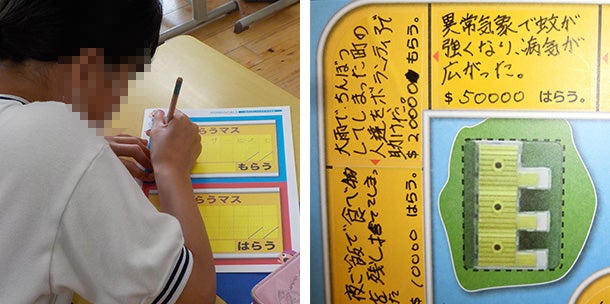 らうマス
もらう
らうマス
はらう
大雨でちんぼつ
してしまった町の
人達をボランティアで
助けた。
$20000 もらう。
異常気象で蚊が
強くなり、病気が
広がった。
$50000 はらう。
夜ご飯で食べ物
を残し捨ててしまっ
$10000 はらう。